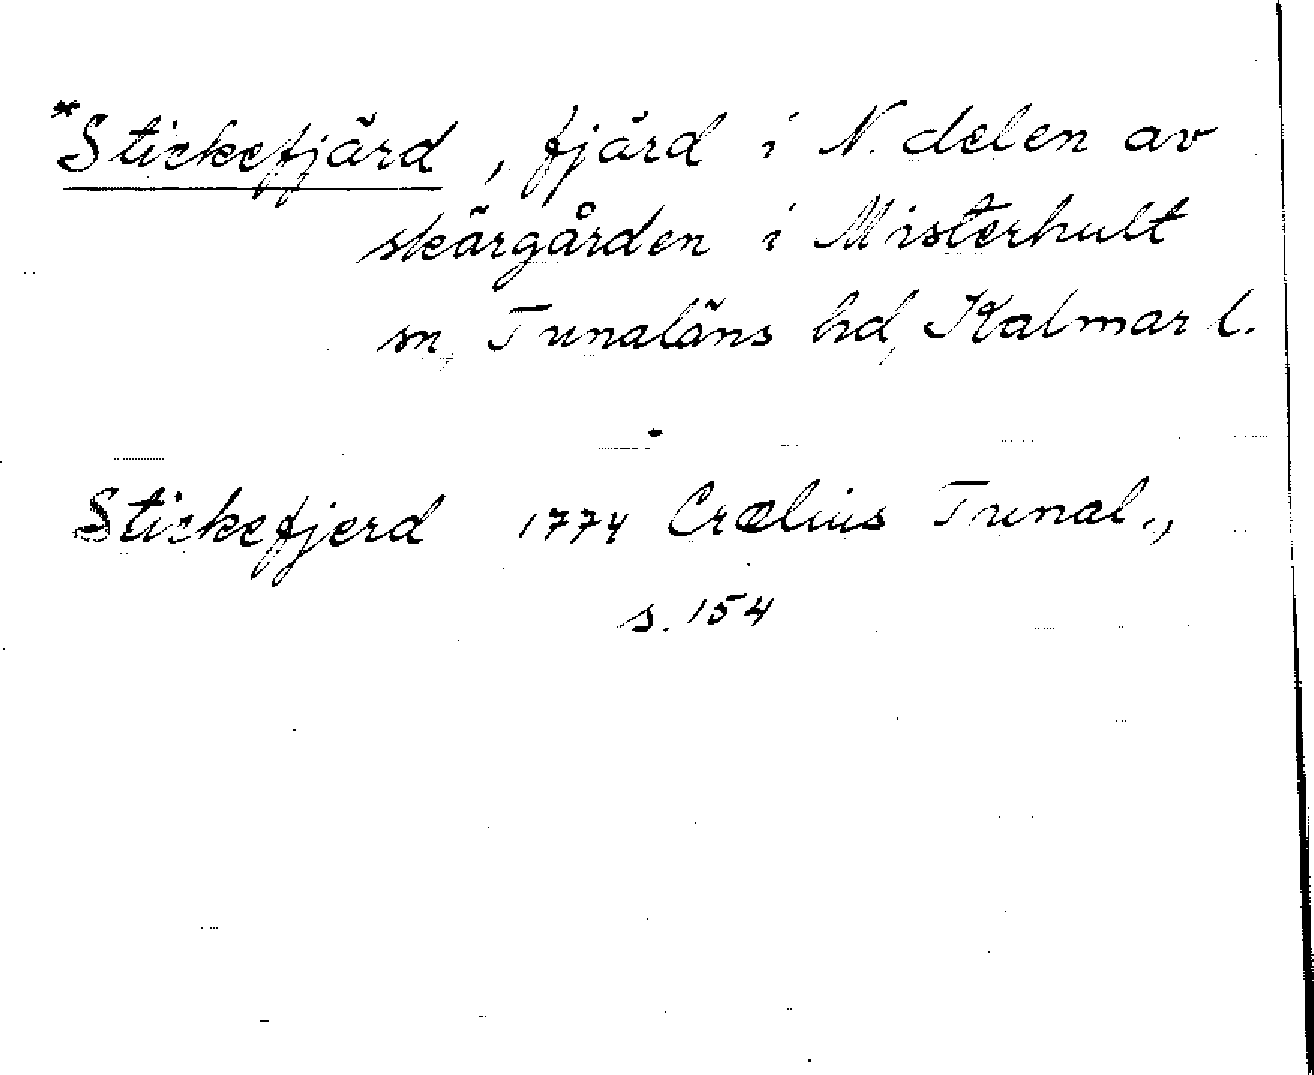 *Stickefjärd, fjärd i N. delen av
skärgården i Misterhult
sn, Tunaläns hd, Kalmar l.
Stickefjerd 1774 Crælius Tunal.,
s. 154